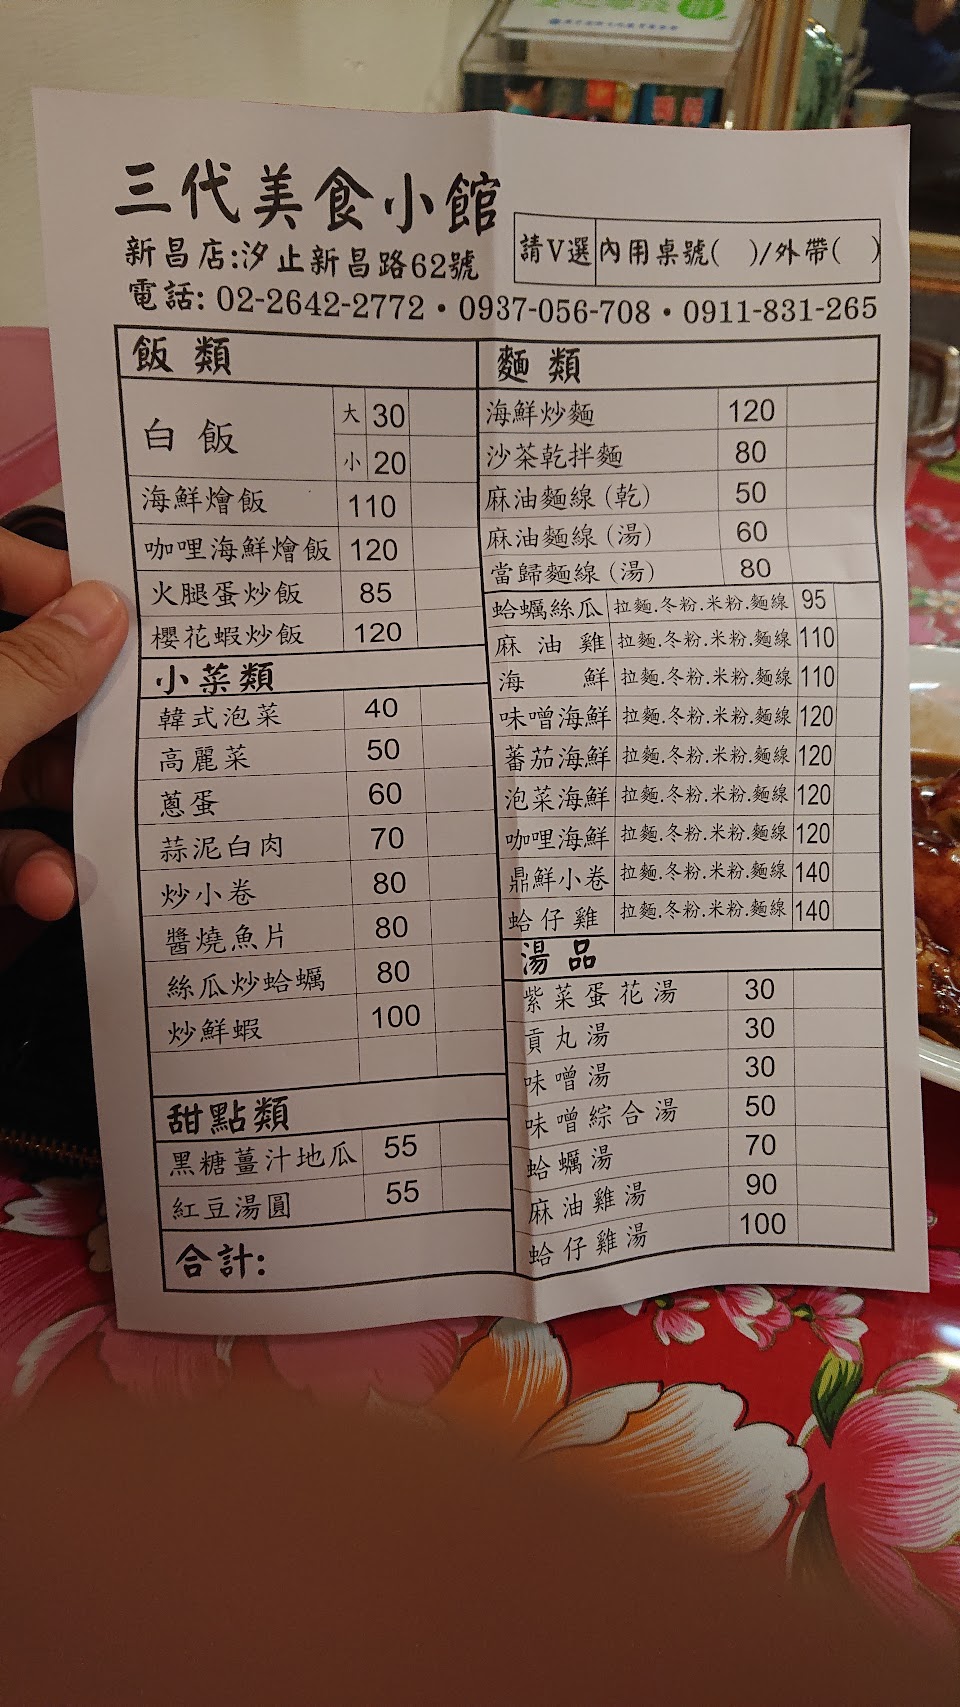 三代美食小館
新昌店:汐止新昌路62號
請V選 內用桌號( )/外帶( )
電話: 02-2642-2772・0937-056-708・0911-831-265
飯類
白飯 大 30
小 20
海鮮燴飯 110
咖哩海鮮燴飯 120
火腿蛋炒飯 85
櫻花蝦炒飯 120
小菜類
韓式泡菜 40
高麗菜 50
蔥蛋 60
蒜泥白肉 70
炒小卷 80
醬燒魚片 80
絲瓜炒蛤蠣 80
炒鮮蝦 100
甜點類
黑糖薑汁地瓜 55
紅豆湯圓 55
合計:
麵類
海鮮炒麵 120
沙茶乾拌麵 80
麻油麵線(乾) 50
麻油麵線(湯) 60
當歸麵線(湯) 80
蛤蠣絲瓜 拉麵.冬粉.米粉.麵線 95
麻油雞 拉麵.冬粉.米粉.麵線 110
海鮮 拉麵.冬粉.米粉.麵線 110
味噌海鮮 拉麵.冬粉.米粉.麵線 120
蕃茄海鮮 拉麵.冬粉.米粉.麵線 120
泡菜海鮮 拉麵.冬粉.米粉.麵線 120
咖哩海鮮 拉麵.冬粉.米粉.麵線 120
鼎鮮小卷 拉麵.冬粉.米粉.麵線 140
蛤仔雞 拉麵.冬粉.米粉.麵線 140
湯品
紫菜蛋花湯 30
貢丸湯 30
味噌湯 30
味噌綜合湯 50
蛤蠣湯 70
麻油雞湯 90
蛤仔雞湯 100